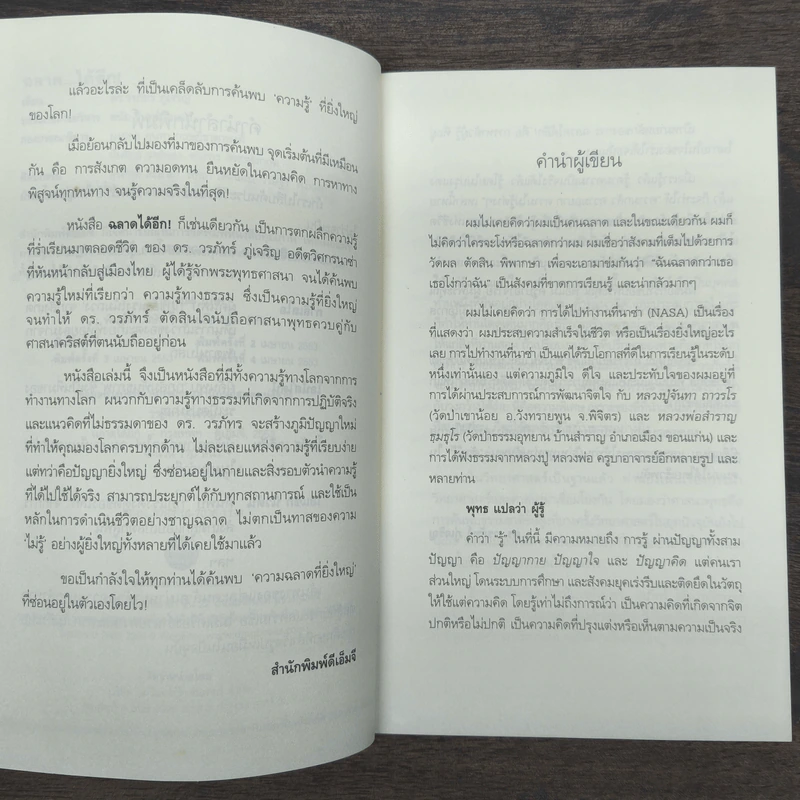 แล้วอะไรล่ะ ที่เป็นเคล็ดลับการค้นพบ 'ความรู้' ที่ยิ่งใหญ่
ของโลก!
เมื่อย้อนกลับไปมองที่มาของการค้นพบ จุดเริ่มต้นที่มีเหมือน
กัน คือ การสังเกต ความอดทน ยืนหยัดในความคิด การหาทาง
พิสูจน์ทุกหนทาง จนรู้ความจริงในที่สุด!
หนังสือ ฉลาดได้อีก! ก็เช่นเดียวกัน เป็นการตกผลึกความรู้
ที่ร่ำเรียนมาตลอดชีวิต ของ ดร. วรภัทร์ ภู่เจริญ อดีตวิศกรนาซ่า
ที่หันหน้ากลับสู่เมืองไทย ผู้ได้รู้จักพระพุทธศาสนา จนได้ค้นพบ
ความรู้ใหม่ที่เรียกว่า ความรู้ทางธรรม ซึ่งเป็นความรู้ที่ยิ่งใหญ่
จนทำให้ ดร. วรภัทร์ ตัดสินใจนับถือศาสนาพุทธควบคู่กับ
ศาสนาคริสต์ที่ตนนับถืออยู่ก่อน
หนังสือเล่มนี้ จึงเป็นหนังสือที่มีทั้งความรู้ทางโลกจากการ
ทำงานทางโลก ผนวกกับความรู้ทางธรรมที่เกิดจากการปฏิบัติจริง
และแนวคิดที่ไม่ธรรมดาของ ดร. วรภัทร จะสร้างภูมิปัญญาใหม่
ที่ทำให้คุณมองโลกครบทุกด้าน ไม่ละเลยแหล่งความรู้ที่เรียบง่าย
แต่ทว่าคือปัญญายิ่งใหญ่ ซึ่งซ่อนอยู่ในกายและสิ่งรอบตัวนำความรู้
ที่ได้ไปใช้ได้จริง สามารถประยุกต์ได้กับทุกสถานการณ์ และใช้เป็น
หลักในการดำเนินชีวิตอย่างชาญฉลาด ไม่ตกเป็นทาสของความ
'ไม่รู้' อย่างผู้ยิ่งใหญ่ทั้งหลายที่ได้เคยใช้มาแล้ว
ขอเป็นกำลังใจให้ทุกท่านได้ค้นพบ 'ความฉลาดที่ยิ่งใหญ่'
ที่ซ่อนอยู่ในตัวเองโดยไว!
สำนักพิมพ์ดีเอ็มจี
คำนำผู้เขียน
ผมไม่เคยคิดว่าผมเป็นคนฉลาด และในขณะเดียวกัน ผมก็
ไม่คิดว่าใครโง่หรือฉลาดกว่าผม ผมเชื่อว่าสังคมที่เต็มไปด้วยการ
วัดผล ตัดสิน พิพากษา เพื่อจะเอามาข่มกันว่า "ฉันฉลาดกว่าเธอ
เธอโง่กว่าฉัน" เป็นสังคมที่ขาดการเรียนรู้ และน่ากลัวมากๆ
ผมไม่เคยคิดว่า การได้ไปทำงานที่นาซ่า (NASA) เป็นเรื่อง
ที่แสดงว่า ผมประสบความสำเร็จในชีวิต หรือเป็นเรื่องยิ่งใหญ่อะไร
เลย การไปทำงานที่นาซ่า เป็นแค่ได้รับโอกาสที่ดีในการเรียนรู้ในระดับ
หนึ่งเท่านั้นเอง แต่ความภูมิใจ ดีใจ และประทับใจของผมอยู่ที่
การได้ผ่านประสบการณ์การพัฒนาจิตใจ กับ หลวงปู่จันทา ถาวรโร
(วัดป่าเขาน้อย อ.วังทรายพูน จ.พิจิตร) และ หลวงพ่อสำราญ
ธมฺธุโร (วัดป่าธรรมอุทยาน บ้านสำราญ อำเภอเมือง ขอนแก่น) และ
การได้ฟังธรรมจากหลวงปู่ หลวงพ่อ ครูบาอาจารย์อีกหลายรูป และ
หลายท่าน
พุทธ แปลว่า ผู้รู้
คำว่า 'รู้' ในที่นี้ มีความหมายถึง การรู้ ผ่านปัญญาทั้งสาม
ปัญญา คือ ปัญญากาย ปัญญาใจ และ ปัญญาคิด แต่คนเรา
ส่วนใหญ่ โดนระบบการศึกษา และสังคมยุคเร่งรีบและติดยึดในวัตถุ
ให้ใช้แต่ความคิด โดยรู้เท่าไม่ถึงการณ์ว่า เป็นความคิดที่เกิดจากจิต
ปกติหรือไม่ปกติ เป็นความคิดที่ปรุงแต่งหรือเห็นตามความเป็นจริง